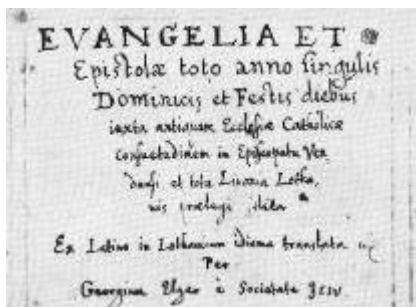 EVANGELIA ET
Epistolæ toto anno singulis
Dominicis et Festis diebus
iuxta antiquam Ecclesiæ Catholicæ
consuetudinem in Episcopatu Ven
densi et tota Livonia Lotha,
vis prælegi
Ex Latino in Lothavicum idioma translata
Per
Georgium Elger è Societate JESV